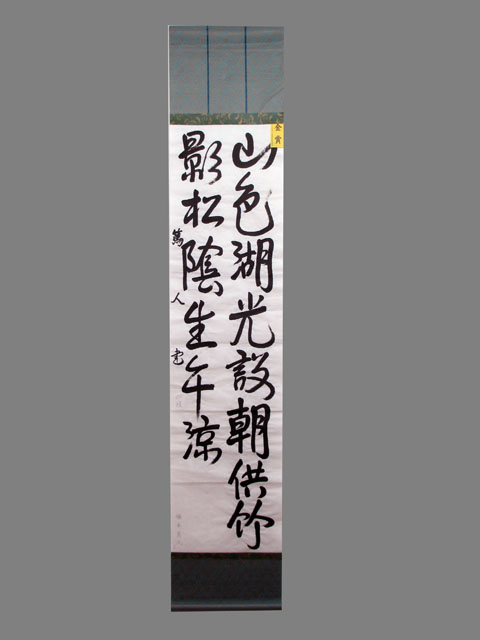 金賞
山色湖光設朝供竹
影松陰生午涼
篤人書